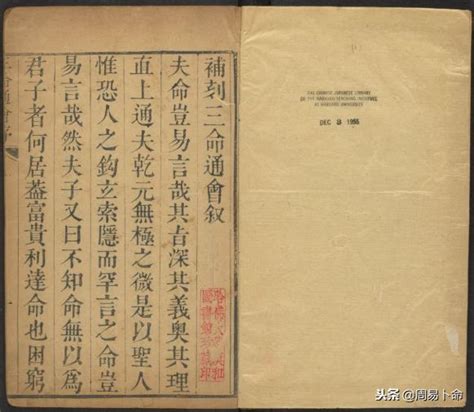 補刻三命通會叙
夫命豈易言哉其㫖深其義奧其理
直上通夫乾元無極之微是以聖人
惟恐人之鈎玄索隱而罕言之命豈
易言哉然夫子又曰不知命無以為
君子者何居葢富貴利達命也困窮
哈佛大學漢和
圖書館珍藏印
THE CHINESE-JAPANESE LIBRARY
OF THE HARVARD-YENCHING INSTITUTE
AT HARVARD UNIVERSITY
DEC 1955
头条 @周易卜命